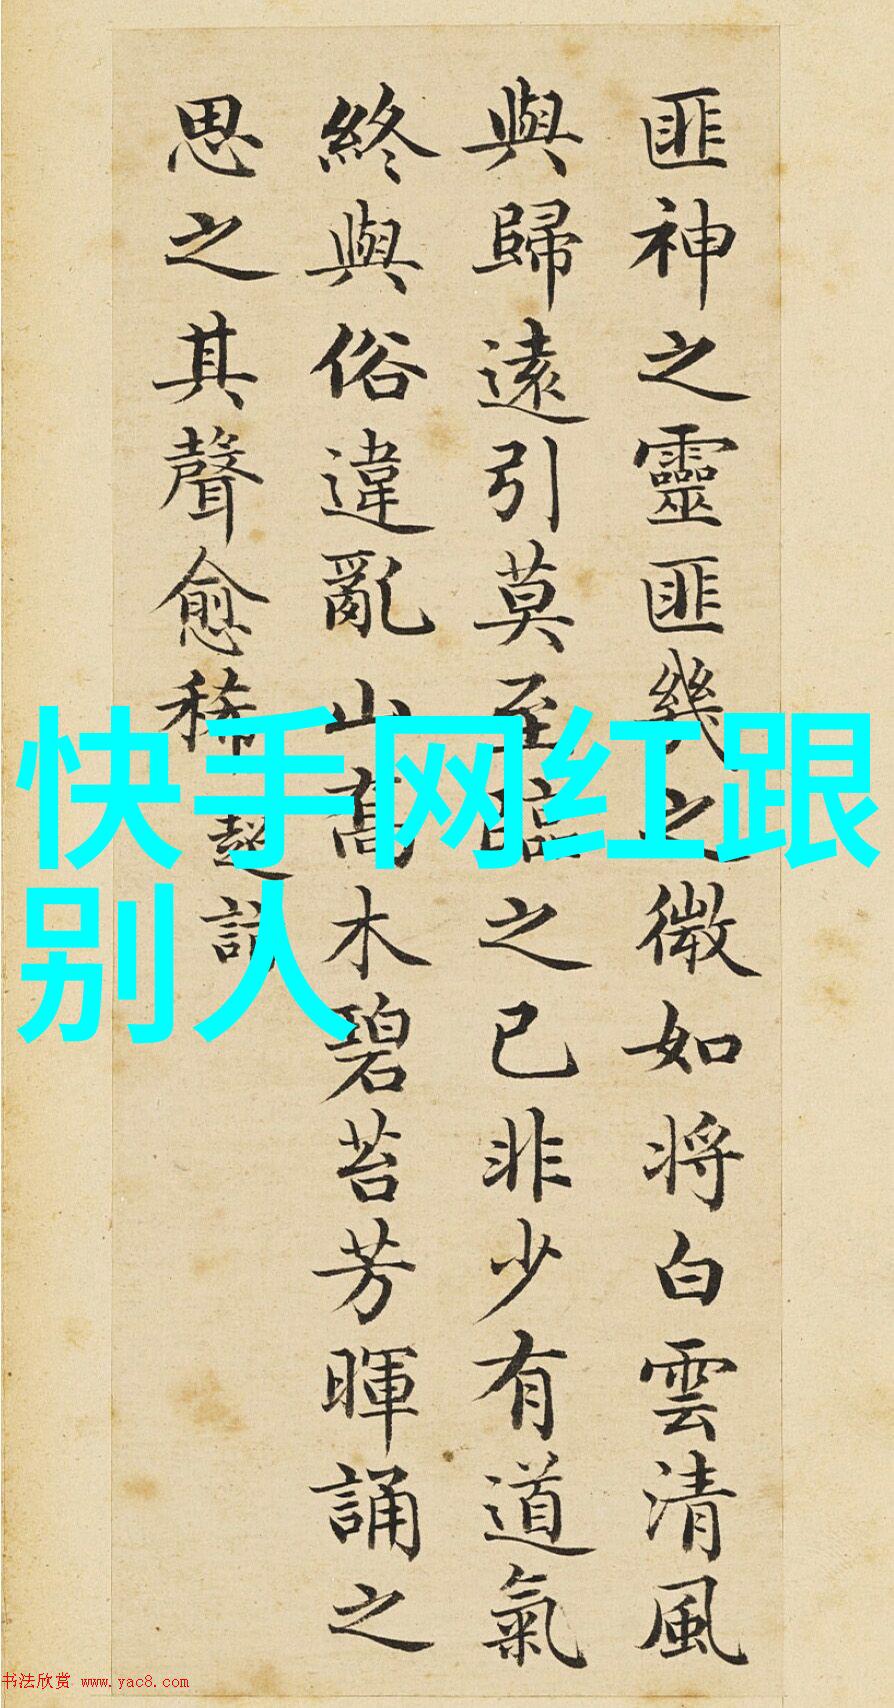 匪神之靈匪幾之微如将白雲清風
與歸遠引莫至臨之已非少有道氣
終與俗違亂山高木碧苔芳暉誦之
思之其聲愈稀
快手网红跟
别人
书法欣赏 www.yac8.com